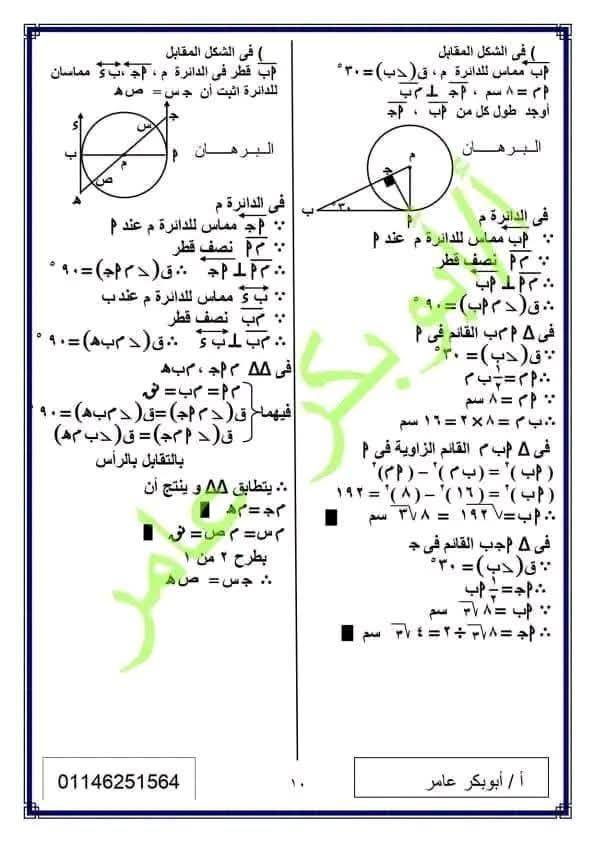 ) فى الشكل المقابل
اب مماس للدائرة م ، ق(حـب)=٣٠°
ام = ٨ سم ، اجـ ⊥ مب
أوجد طول كل من اب ، اجـ
البرهان
م
جـ
٣٠°
ب
ا
فى الدائرة م
∵ اب مماس للدائرة م عند ا
∵ م ا نصف قطر
∴ م ا ⊥ اب
∴ ق(حـ م اب)= ٩٠°
فى Δ ا م ب القائم فى ا
∵ ق(حـب)= ٣٠°
∴ ام= ½ ب م
∵ ام= ٨ سم
∴ ب م = ٨ × ٢ = ١٦ سم
فى Δ اب م القائم الزاوية فى ا
( اب )² = (ب م )² – ( ام )²
( اب )² = (١٦ )² – ( ٨ )² = ١٩٢
∴ اب= √١٩٢ = ٨√٣ سم
فى Δ اجـب القائم فى جـ
∵ ق(حـب)= ٣٠°
∴ اجـ= ½ اب
∵ اب = ٨√٣ سم
∴ اجـ = ٨√٣ ÷ ٢ = ٤√٣ سم
) فى الشكل المقابل
اب قطر فى الدائرة م ، اجـ ، ب ء مماسان
للدائرة اثبت أن جـ س = ص هـ
البرهان
جـ
ء
س
ب
م
ا
ص
هـ
فى الدائرة م
∵ اجـ مماس للدائرة م عند ا
∵ م ا نصف قطر
∴ م ا ⊥ اجـ ∴ ق(حـ م اجـ)= ٩٠°
∵ ب ء مماس للدائرة م عند ب
∵ م ب نصف قطر
∴ م ب ⊥ ب ء ∴ ق(حـ م ب هـ)= ٩٠°
فى ΔΔ م اجـ ، م ب هـ
م ا = م ب = نق
فيهما ق(حـ م اجـ)= ق(حـ م ب هـ)= ٩٠°
ق(حـ ا م جـ)= ق(حـ ب م هـ)
بالتقابل بالرأس
∴ يتطابق ΔΔ و ينتج أن
م جـ = م هـ
م س = م ص = نق
بطرح ٢ من ١
∴ جـ س = ص هـ
أبو بكر عامر
أ / أبوبكر عامر
١٠
01146251564